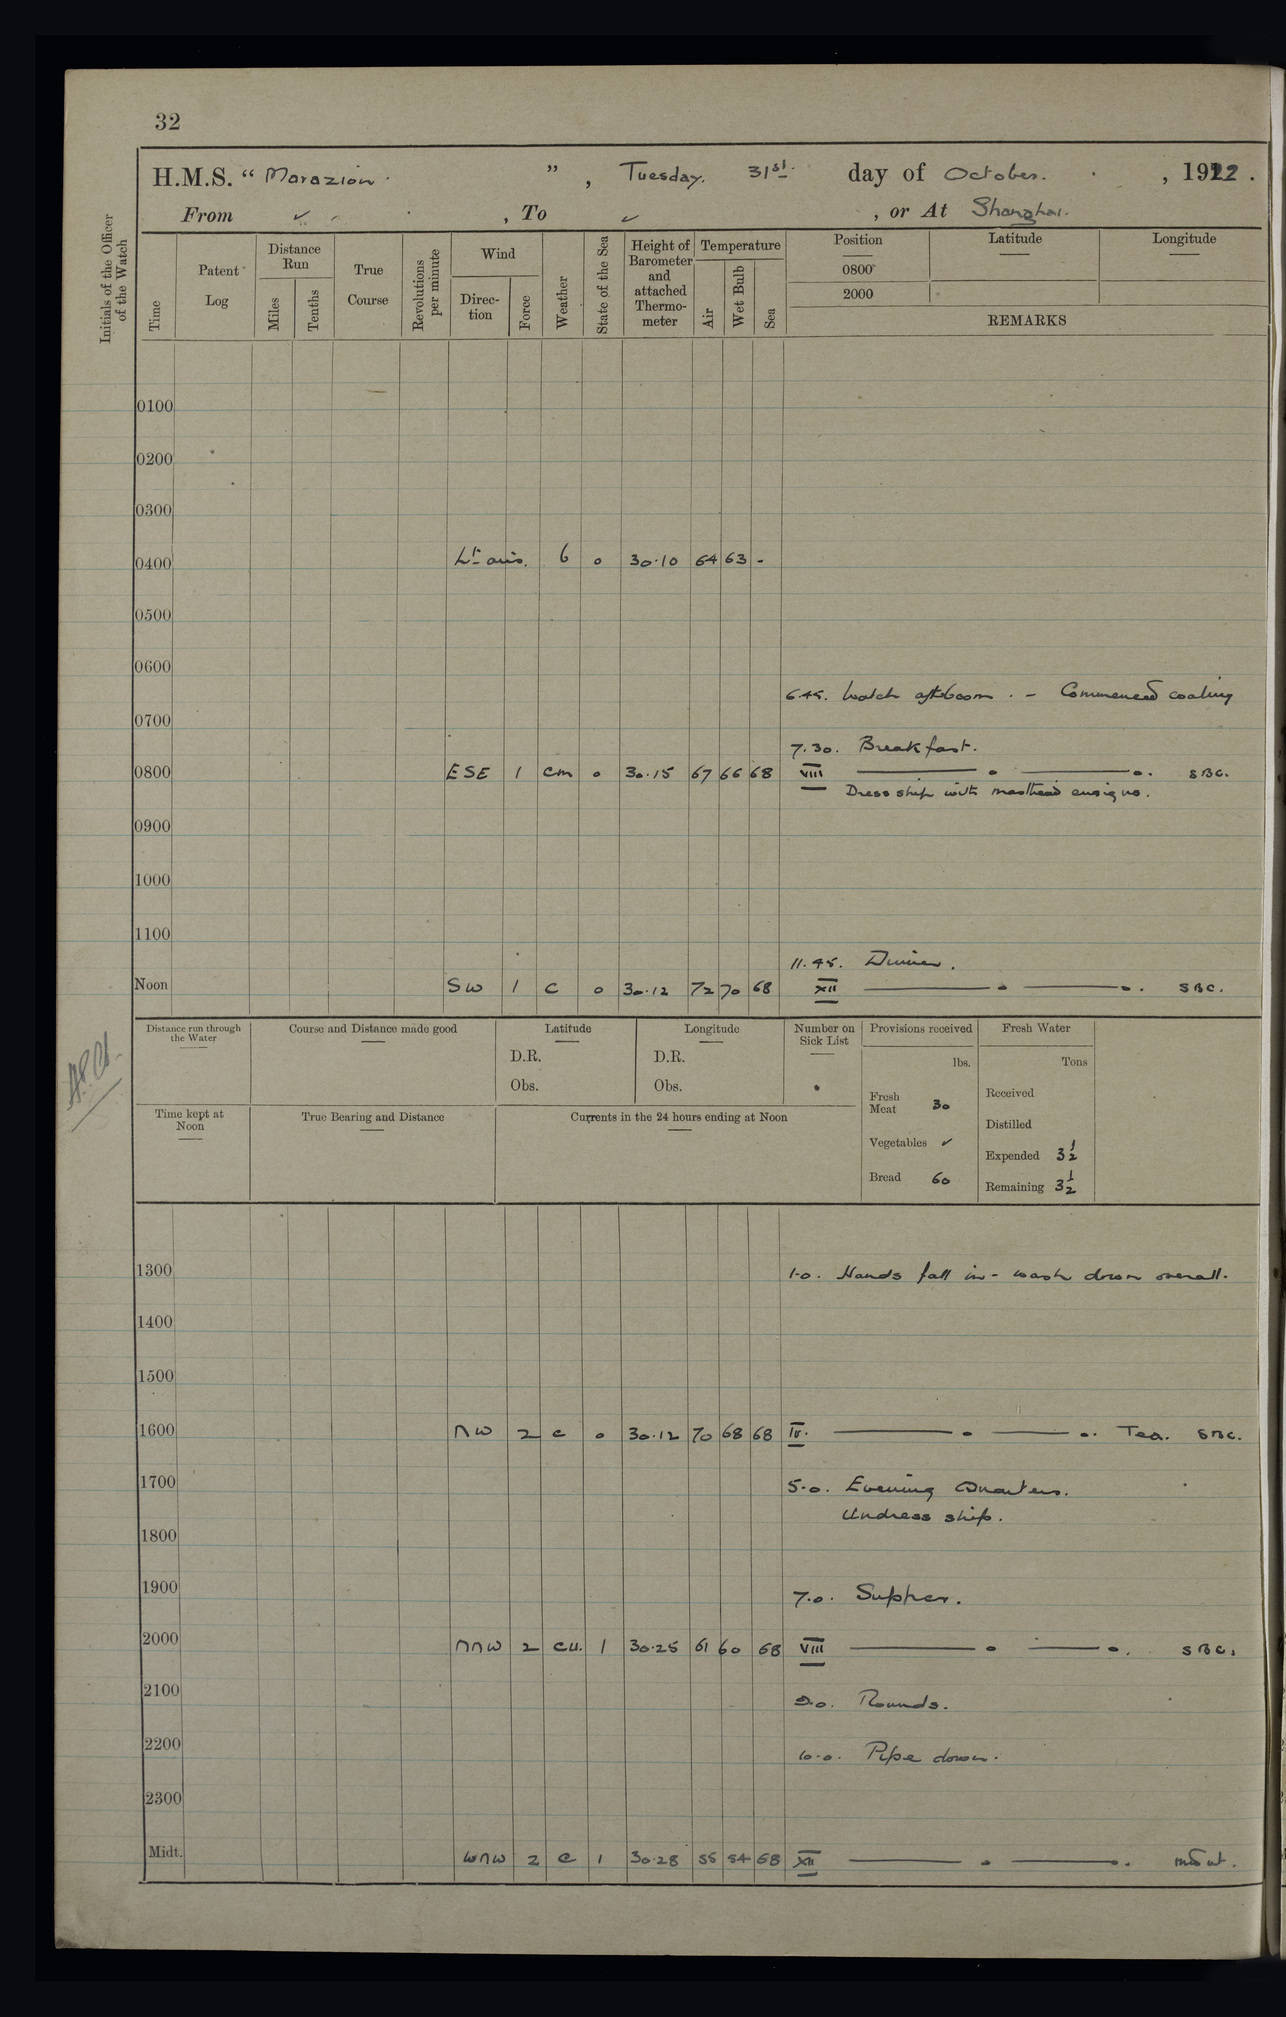 32
H.M.S. “ Marazion. ” , Tuesday. 31st. day of October. , 1922.
From ✓ , To ✓ , or At Shanghai.
Initials of the Officer of the Watch
Time
Patent Log
Distance Run
Miles
Tenths
True Course
Revolutions per minute
Wind
Direc-tion
Force
Weather
State of the Sea
Height of Barometer and attached Thermo-meter
Temperature
Air
Wet Bulb
Sea
Position
Latitude
Longitude
0800
2000
REMARKS
0100
0200
0300
0400 Lt airs. b 0 30.10 64 63 -
0500
0600
6.45. Watch aft boom. - Commenced coaling
0700
7.30. Breakfast.
0800 ESE 1 cm 0 30.15 67 66 68 VIII SBC.
Dress ship with masthead ensigns.
0900
1000
1100
11.45. Dinner.
Noon SW 1 c 0 30.12 72 70 68 XII SBC.
Distance run through the Water
Course and Distance made good
Latitude
D.R.
Obs.
Longitude
D.R.
Obs.
Number on Sick List
Provisions received
lbs.
Fresh Meat 30
Vegetables ✓
Bread 60
Fresh Water
Tons
Received
Distilled
Expended 3½
Remaining 3½
Time kept at Noon
True Bearing and Distance
Currents in the 24 hours ending at Noon
1300 1.0. Hands fall in - wash down overall.
1400
1500
1600 NW 2 c 0 30.12 70 68 68 IV. Tea. SBC.
1700 5.0. Evening Quarters.
Undress ship.
1800
1900 7.0. Supper.
2000 NNW 2 cu. 1 30.25 61 60 68 VIII SBC.
2100 9.0. Rounds.
2200 10.0. Pipe down.
2300
Midt. WNW 2 c 1 30.28 55 54 68 XII